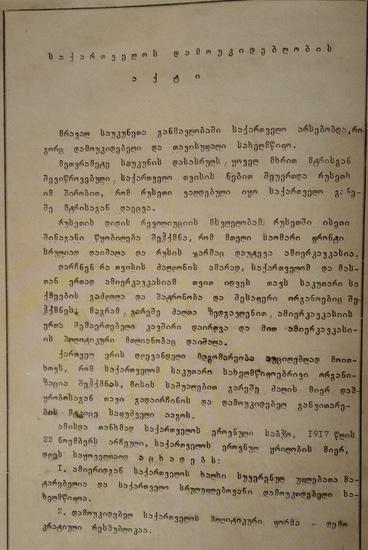 საქართველოს დამოუკიდებლობის
აქტი
მრავალ საუკუნეთა განმავლობაში საქართველო არსებობდა, რო-
გორც დამოუკიდებელი და თავისუფალი სახელმწიფო.
მეთვრამეტე საუკუნის დასასრულს, ყოველ მხრით მტრისგან
შევიწროვებული, საქართველო თვისის ნებით შეუერდა რუსეთს
იმ პირობით, რომ რუსეთი ვალდებული იყო საქართველო გარე-
შე მტრისაგან დაეცვა.
რუსეთის დიდის რევოლიუციის მსვლელობამ რუსეთში ისეთი
შინაგანი წყობილება შეჰქმნა, რომ მთელი საომარი ფრონტი
სრულიად დაიშალა და რუსის ჯარმაც დაუტევა ამიერკავკასია.
დარჩნენ რა თვისის ძალღონის ამარად, საქართველომ და მას-
თან ერთად ამიერკავკასიამ თვით იდვეს თავს საკუთარი სა-
ქმეების გაძღოლა და პატრონობა და შესაფერი ორგანოებიც შე-
ჰქმნეს; მაგრამ, გარეშე ძალთა ზედგავლენით, ამიერკავკასიის
ერთა შემაერთებელი კავშირი დაირღვა და მით ამიერკავკასი-
ის პოლიტიკური მთლიანობაც დაიშალა.
ქართველ ერის დღევანდელი მდგომარეობა აუცილებლად მოით-
ხოვს, რომ საქართველომ საკუთარი სახელმწიფოებრივი ორგანი-
ზაცია შეჰქმნას, მისის საშუალებით გარეშე ძალის მიერ დამ-
ყრობისაგან თავი გადაირჩინოს და დამოუკიდებელ განვითარე-
ბის მტკიცე საფუძველი ააგოს.
ამისდა თანხმად საქართველოს ეროვნული საბჭო, 1917 წლის
22 ნოემბერს არჩეული, საქართველოს ეროვნულ ყრილობის მიერ,
დღეს საყოველთაოდ აცხადებს:
1. ამიერიდგან საქართველოს ხალხი სუვერენულ უფლებათა მა-
ტარებელია და საქართველო სრულუფლებოვანი დამოუკიდებელი სა-
ხელმწიფოა.
2. დამოუკიდებელ საქართველოს პოლიტიკური ფორმა - დემო
კრატიული რესპუბლიკაა.